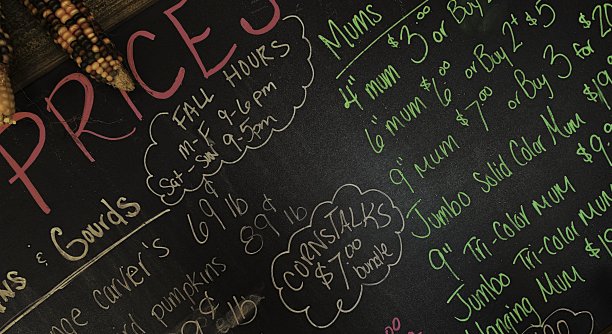 PRICES
FALL HOURS
M-F 9-6pm
Sat-Sun 9-5pm
& Gourds
69¢ lb
carver's 89¢ lb
pumpkins
9¢ lb
CORNSTALKS
$7.00
bundle
Mums
4" mum $3.00 or Buy
6" mum $6.00 or Buy 2 + $5
9" mum $7.00 or Buy 3 for
Jumbo Solid Color Mum
9" Tri-Color Mum
Jumbo Tri-Color Mum
Mum